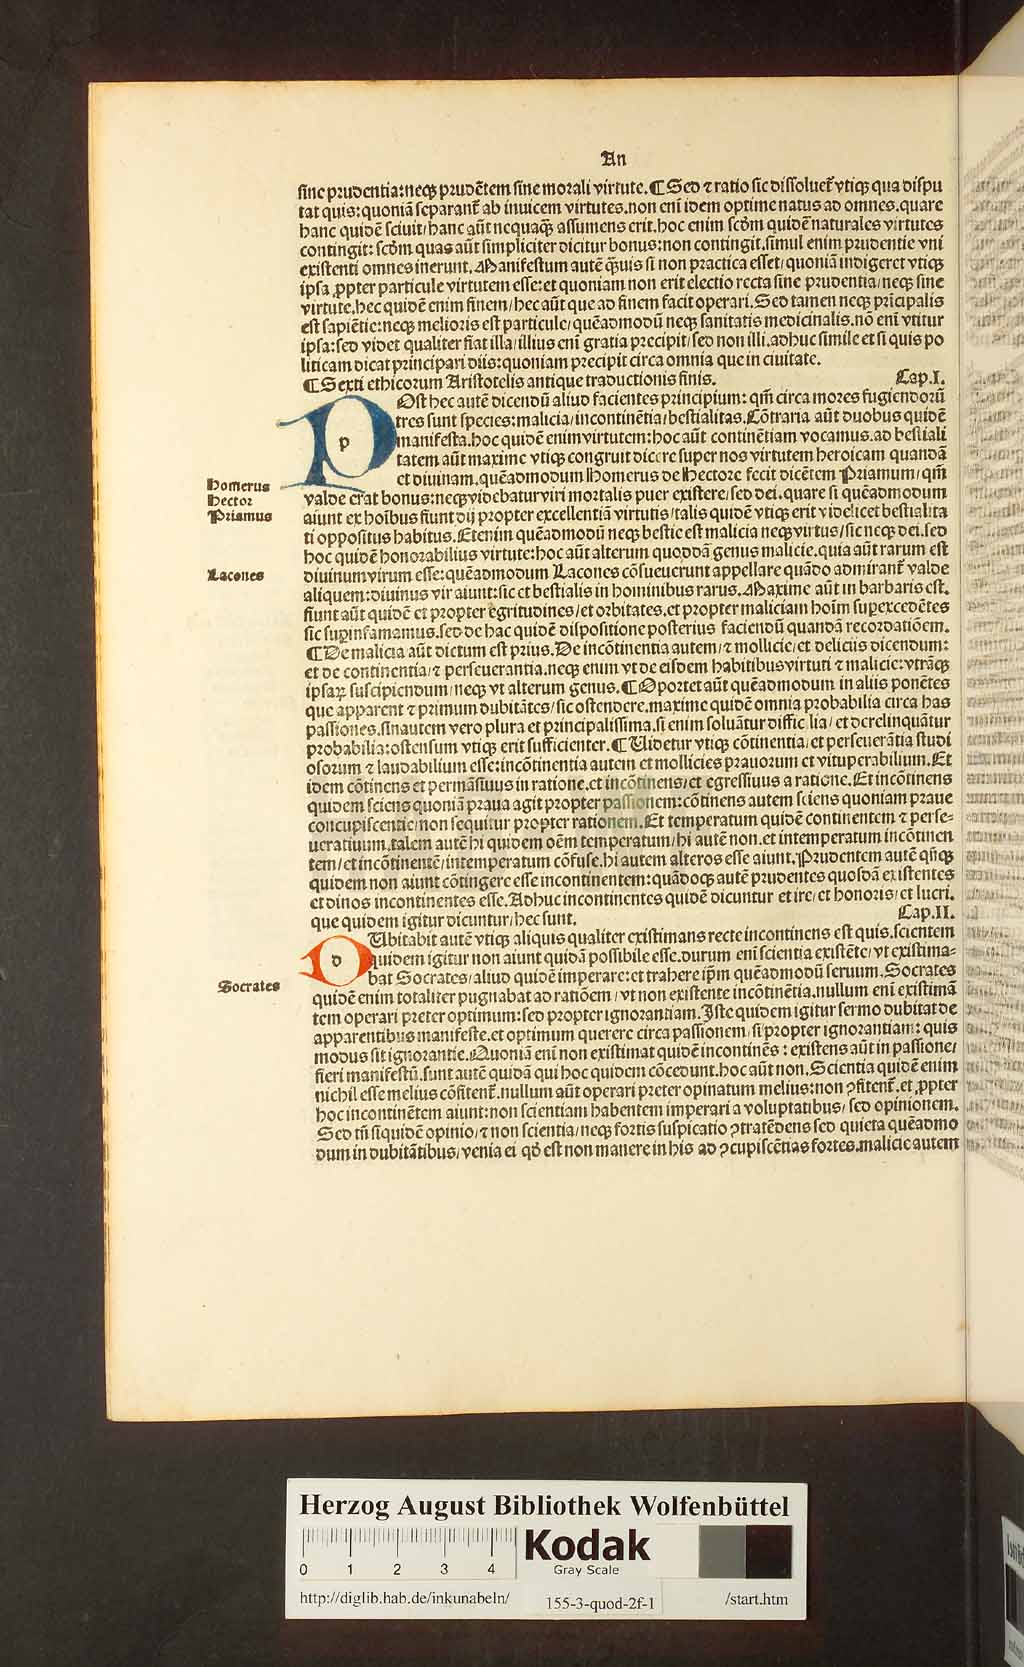 An
sine prudentia:neqꝫ prudētem sine morali virtute.¶Sed ⁊ ratio sic dissoluet᷑ vtiqꝫ qua dispu
tat quis:quoniā separant᷑ ab inuicem virtutes.non eni̅ idem optime natus ad omnes.quare
hanc quidē sciuit/hanc aūt nequaqꝫ assumens erit.hoc enim scd̄m quidē naturales virtutes
contingit: scd̄m quas aūt simpliciter dicitur bonus:non contingit.simul enim prudentie vni
existenti omnes inerunt.Manifestum autē qͣ̄uis si non practica esset/quoniā indigeret vtiqꝫ
ipsa ꝓpter particule virtutem esse:et quoniam non erit electio recta sine prudentia/neqꝫ sine
virtute.hec quidē enim finem/hec aūt que ad finem facit operari.Sed tamen neqꝫ prīcipalis
est sapiētie:neqꝫ melioris est particule/quēadmodū neqꝫ sanitatis medicinalis.nō eni̅ vtitur
ipsa:sed videt qualiter fiat illa/illius eni̅ gratia precipit/sed non illi.adhuc simile et si quis po
liticam dicat principari diis:quoniam precipit circa omnia que in ciuitate.
¶Sexti ethicorum Aristotelis antique traductionis finis. Cap.I.
p
Ost hec autē dicendū aliud facientes principium: qm̄ circa mores fugiendorū
tres sunt species:malicia/incontinētia/bestialitas.Cōtraria aūt duobus quidē
manifesta.hoc quidē enim virtutem:hoc aūt continētiam vocamus.ad bestiali
tatem aūt maxime vtiqꝫ congruit dicere super nos virtutem heroicam quandā
et diuinam.quēadmodum Homerus de Hectore fecit dicētem Priamum/qm̄
Homerus
Hector
Priamus
valde erat bonus:neqꝫ videbatur viri mortalis puer existere/sed dei.quare si quēadmodum
aiunt ex hoībus fiunt dij propter excellentiā virtutis/talis quidē vtiqꝫ erit videlicet bestialita
ti oppositus habitus.Etenim quēadmodū neqꝫ bestie est malicia neqꝫ virtus/sic neqꝫ dei.sed
hoc quidē honorabilius virtute:hoc aūt alterum quoddā genus malicie.quia aūt rarum est
Lacones
diuinum virum esse:quēadmodum Lacones cōsueuerunt appellare quādo admirant᷑ valde
aliquem:diuinus vir aiunt:sic et bestialis in hominibus rarus.Maxime aūt in barbaris est.
fiunt aūt quidē et propter egritudines/et orbitates.et propter maliciam hoīm supercedētes
sic superinfamamus.sed de hac quidē dispositione posterius faciendū quandā recordatiōem.
¶De malicia aūt dictum est prius.De incōtinentia autem/⁊ mollicie/et deliciis dicendum:
et de continentia/⁊ perseuerantia.neqꝫ enim vt de eisdem habitibus virtuti ⁊ malicie:vtrāqꝫ
ipsaꝝ suscipiendum/neqꝫ vt alterum genus.¶Oportet aūt quēadmodum in aliis ponētes
que apparent ⁊ primum dubitātes/sic ostendere.maxime quidē omnia probabilia circa has
passiones.sinautem vero plura et principalissima.si enim soluātur difficilia/et derelinquātur
probabilia:ostensum vtiqꝫ erit sufficienter.¶Videtur vtiqꝫ cōtinentia/et perseuerātia studi
osorum ⁊ laudabilium esse:incōtinentia autem et mollicies prauorum et vituperabilium.Et
idem cōtinens et permāsiuus in ratione.et incōtinens/et egressiuus a ratione.Et incōtinens
quidem sciens quoniā praua agit propter passionem:cōtinens autem sciens quoniam praue
concupiscentie/non sequitur propter rationem.Et temperatum quidē continentem ⁊ perse-
ueratiuum.talem autē hi quidem oēm temperatum/hi autē non.et intemperatum incōtinen
tem/et incōtinentē/intemperatum cōfuse.hi autem alteros esse aiunt.Prudentem autē qn̄qꝫ
quidem non aiunt cōtingere esse incontinentem:quādoqꝫ autē prudentes quosdā existentes
et dinos incontinentes esse.Adhuc incontinentes quidē dicuntur et ire/et honoris/et lucri.
que quidem igitur dicuntur/hec sunt. Cap.II.
d
Ubitabit autē vtiqꝫ aliquis qualiter existimans recte incontinens est quis.scientem
quidem igitur non aiunt quidā possibile esse.durum eni̅ scientia existēte/vt existima-
bat Socrates/aliud quidē imperare:et trahere ip̄m quēadmodū seruum.Socrates
Socrates
quidē enim totaliter pugnabat ad ratiōem/vt non existente incōtinētia.nullum eni̅ existimā
tem operari preter optimum:sed propter ignorantiam.Iste quidem igitur sermo dubitat de
apparentibus manifeste.et optimum querere circa passionem si propter ignorantiam: quis
modus sit ignorantie.Quoniā eni̅ non existimat quidē incontinēs: existens aūt in passione/
fieri manifestū.sunt autē quidā qui hoc quidem cōcedunt.hoc aūt non.Scientia quidē enim
nichil esse melius cōfitent᷑.nullum aūt operari preter opinatum melius:non ꝯfitent᷑.et ꝓpter
hoc incontinētem aiunt:non scientiam habentem imperari a voluptatibus/sed opinionem.
Sed tn̄ siquidē opinio/⁊ non scientia/neqꝫ fortis suspicatio ꝯtratēdens sed quieta quēadmo
dum in dubitātibus/venia ei qd̄ est non manere in his ad ꝯcupiscētias fortes.malicie autem
Herzog August Bibliothek Wolfenbüttel
0 1 2 3 4
Kodak
Gray Scale
http://diglib.hab.de/inkunabeln/ 155-3-quod-2f-1 /start.htm